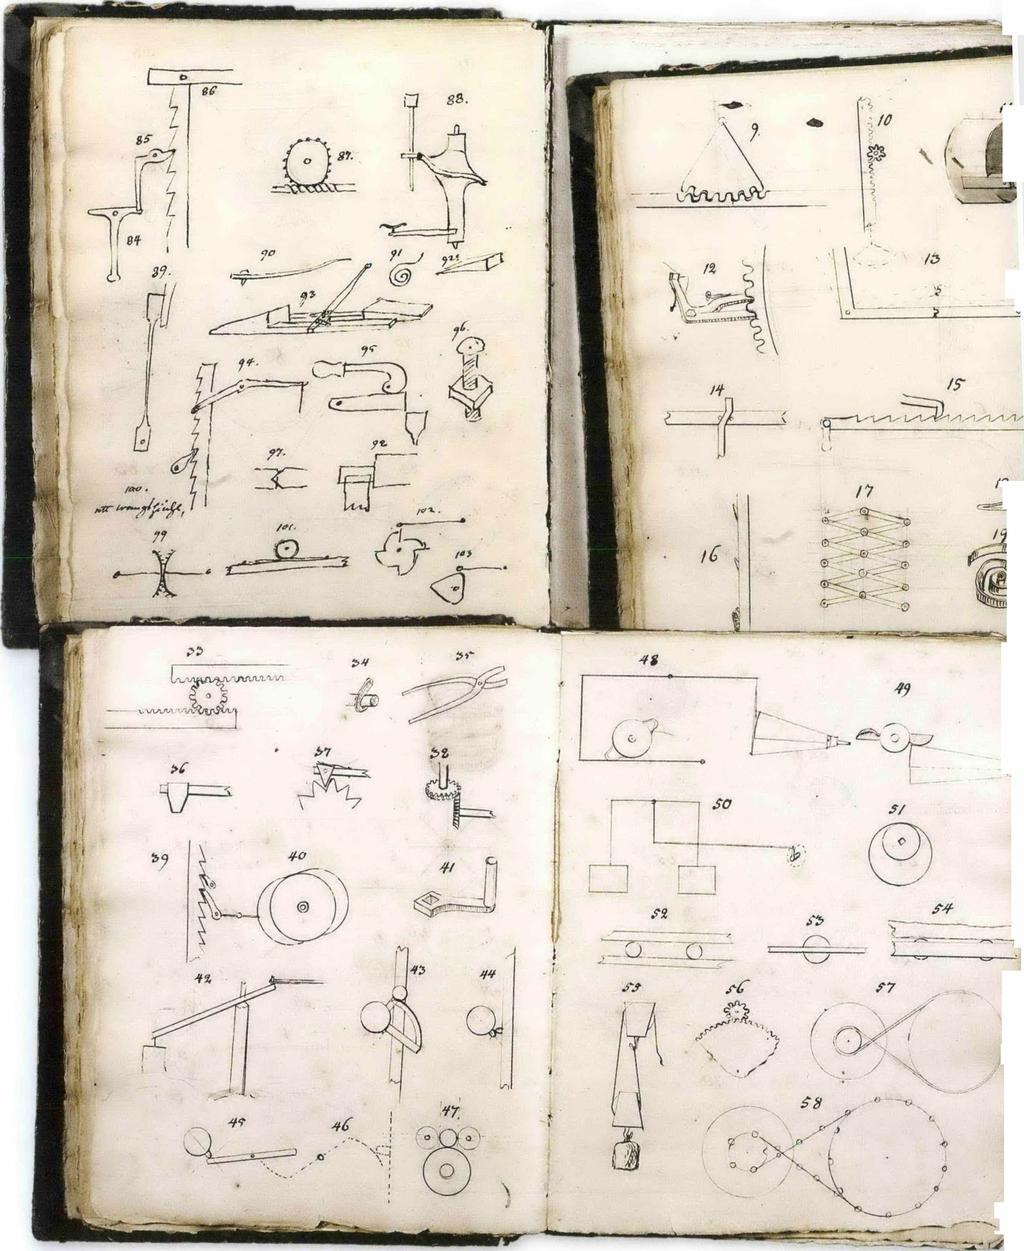 86
85
87.
88.
84
89.
90
91
92½
93
94.
95
96.
97.
92
100.
99
101.
102.
103
9.
10
12
13
14
15
16
17
19
33
34
35
36
37
38
39
40
41
42
43
44
45
46
47.
48
49
50
51
52
53
54
55
56
57
58